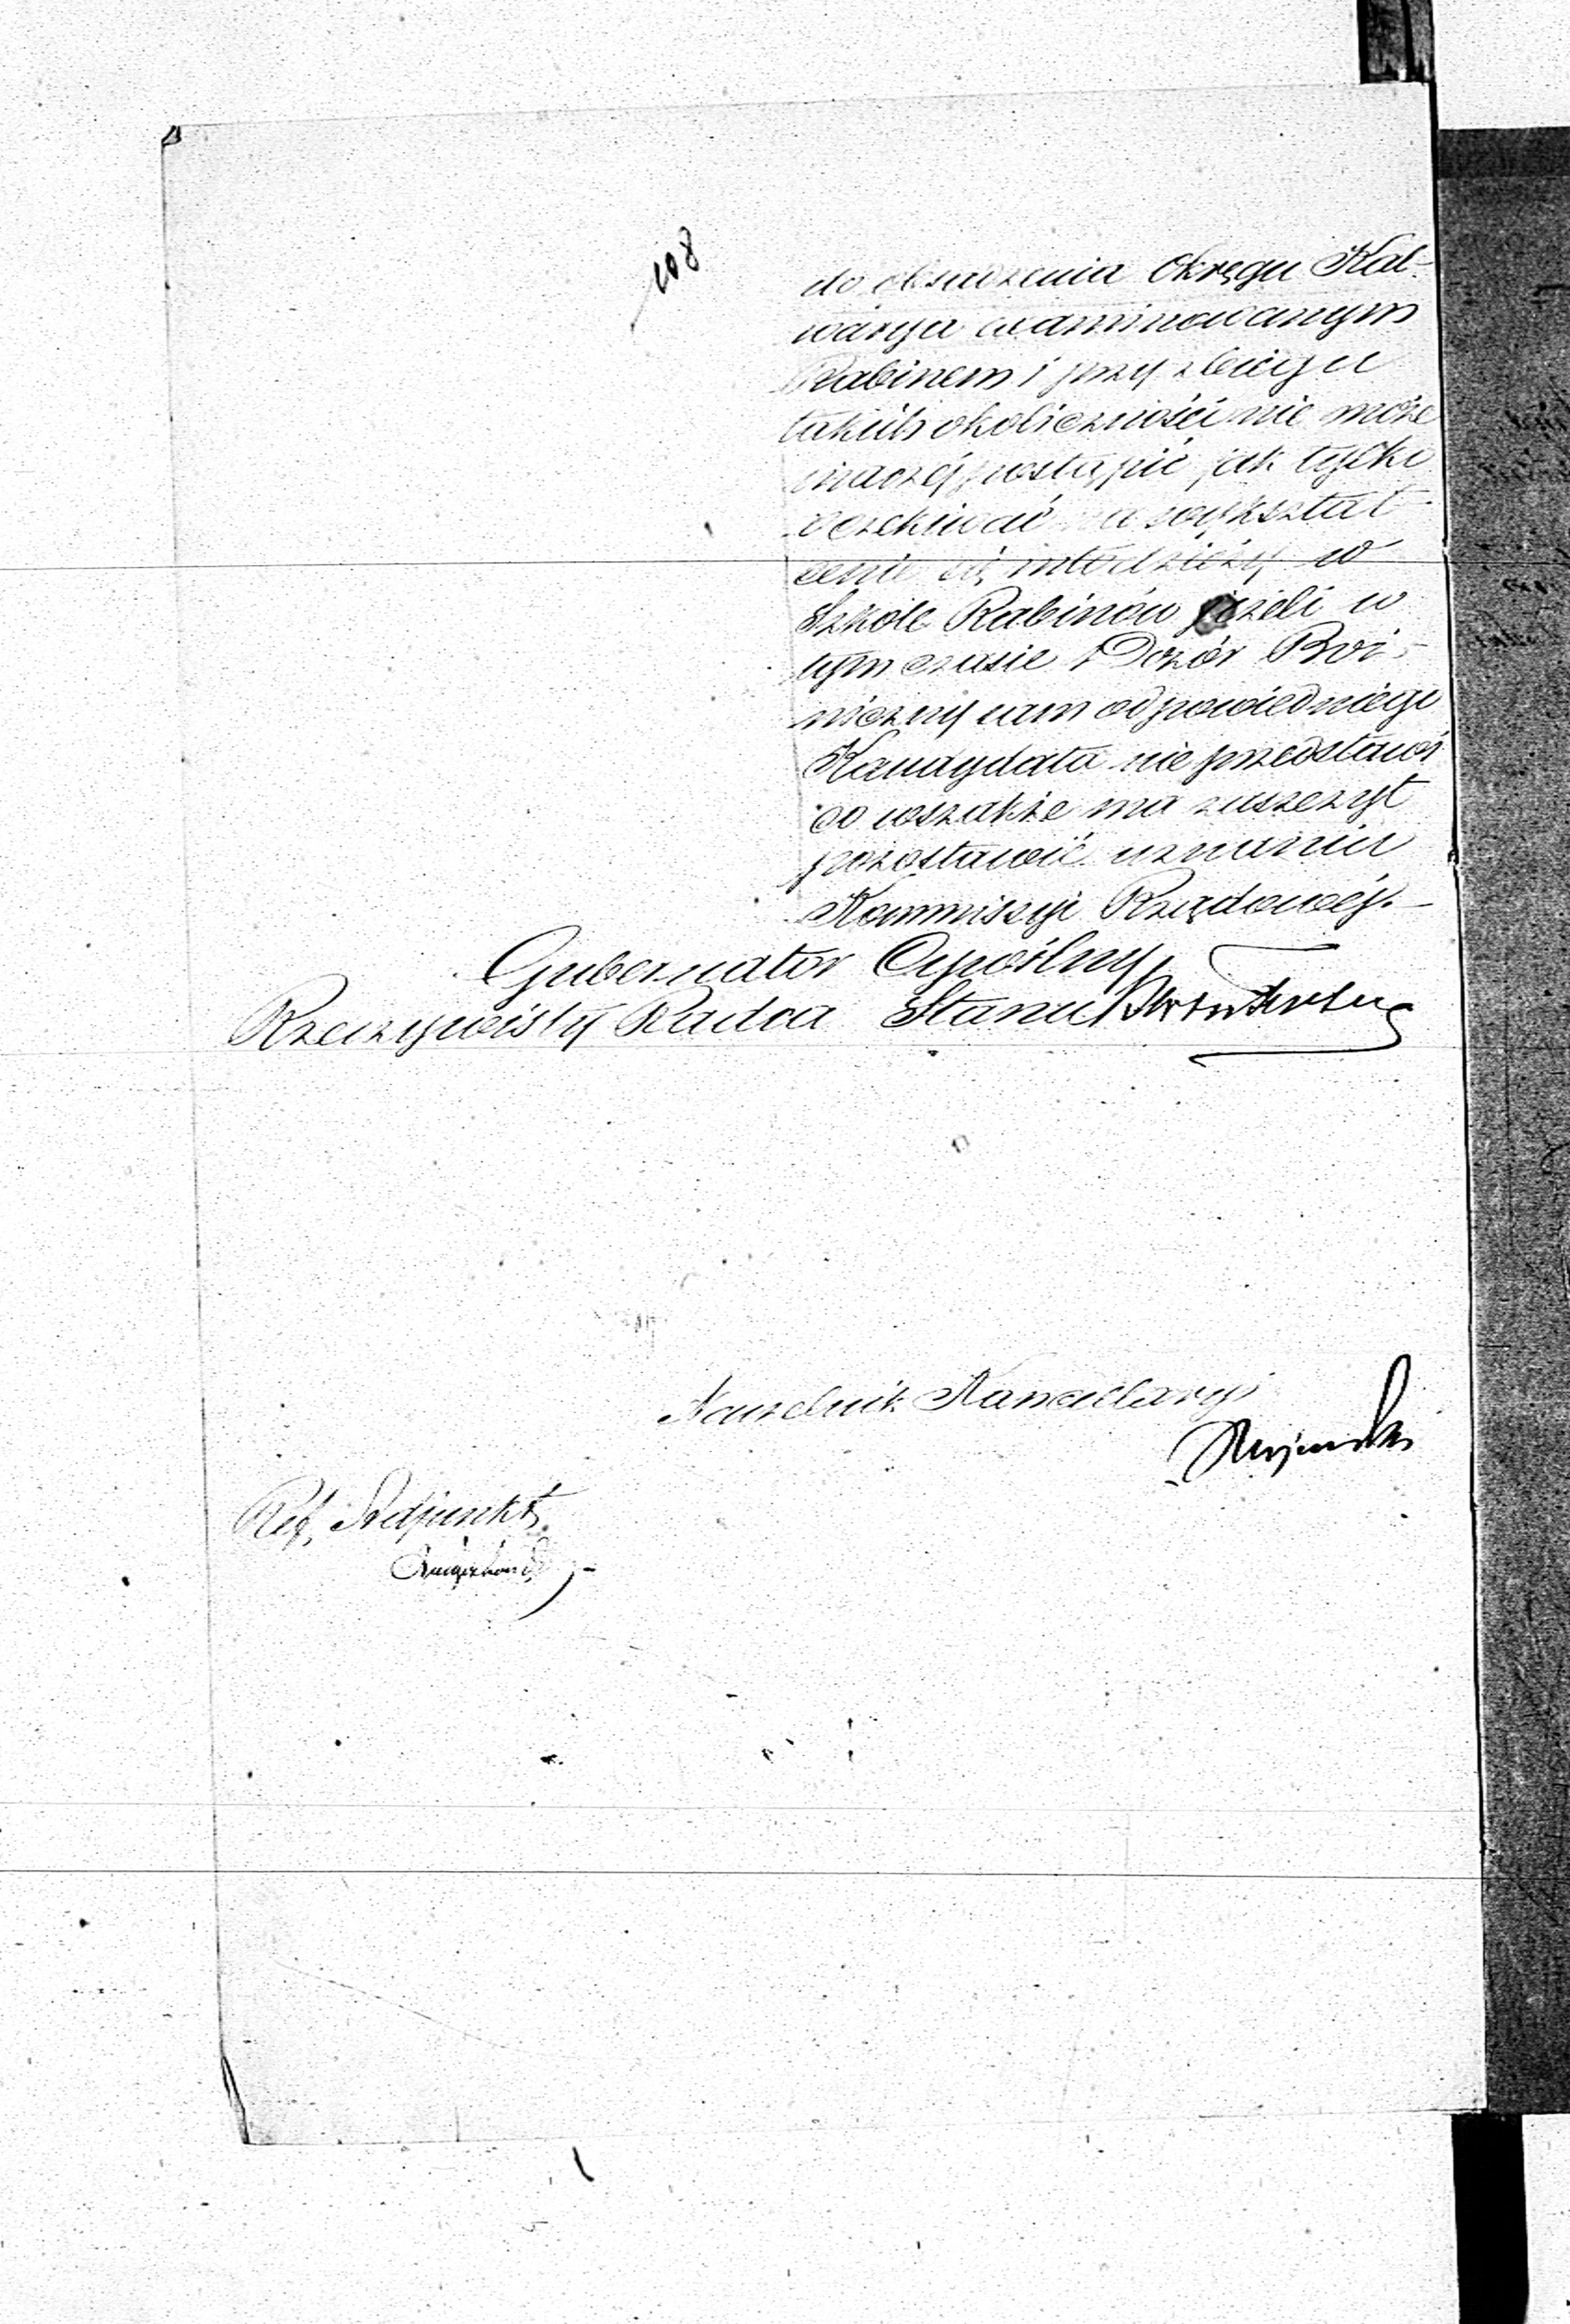 108
do obsadzenia Okręgu Kal-
warya examinowanym
Rabinem i przy zbiegu
takich okoliczności nie może
inaczéj postąpić jak tylko
oczekiwać na wykształ-
cenie się młodzieży w
Szkole Rabinów jeżeli w
tym czasie Dozór Boż-
niczny sam odpowiedniego
Kandydata nie przedstawi
co wszakże ma zaszczyt
pozostawić uznaniu
Kommissyi Rządowéj.—
Gubernator Cywilny
Rzeczywisty Radca Stanu
Naczelnik Kancellaryi
Ref. Adjunkt